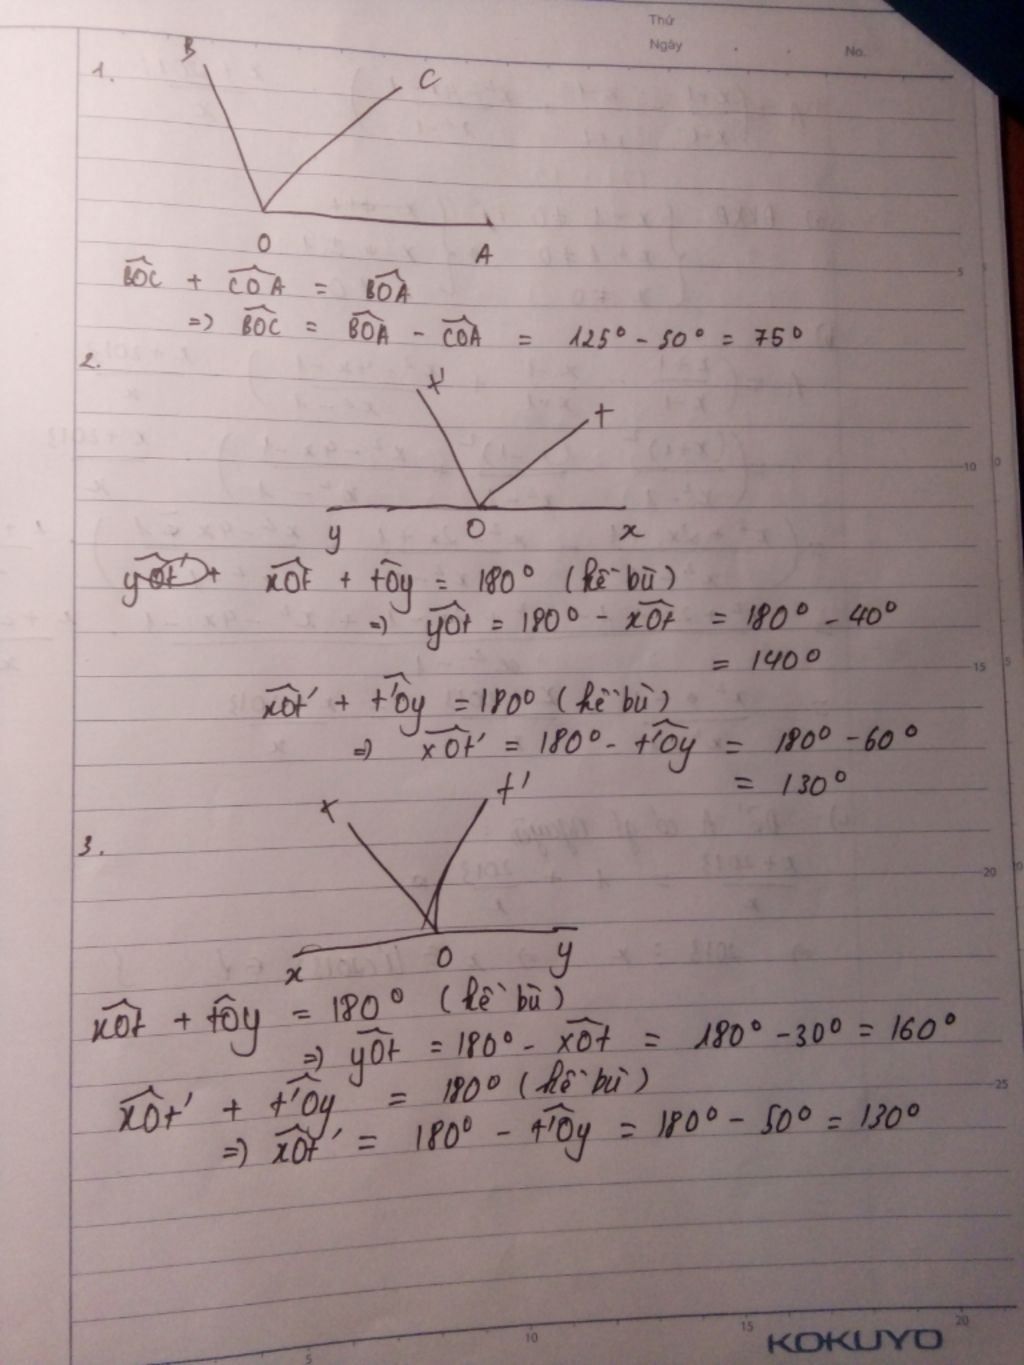 Thứ
Ngày . . No.
1.
B C
O A
BOC + COA = BOA
=) BOC = BOA - COA = 125° - 50° = 75°
2.
t' t
y O x
xOt + tOy = 180° (kề bù)
=) yOt = 180° - xOt = 180° - 40°
= 140°
xOt' + t'Oy = 180° (kề bù)
=) xOt' = 180° - t'Oy = 180° - 60°
= 130°
3.
t t'
x O y
xOt + tOy = 180° (kề bù)
=) yOt = 180° - xOt = 180° - 30° = 160°
xOt' + t'Oy = 180° (kề bù)
=) xOt' = 180° - t'Oy = 180° - 50° = 130°
5
10
15
20
25
5 10 15 20
KOKUYO